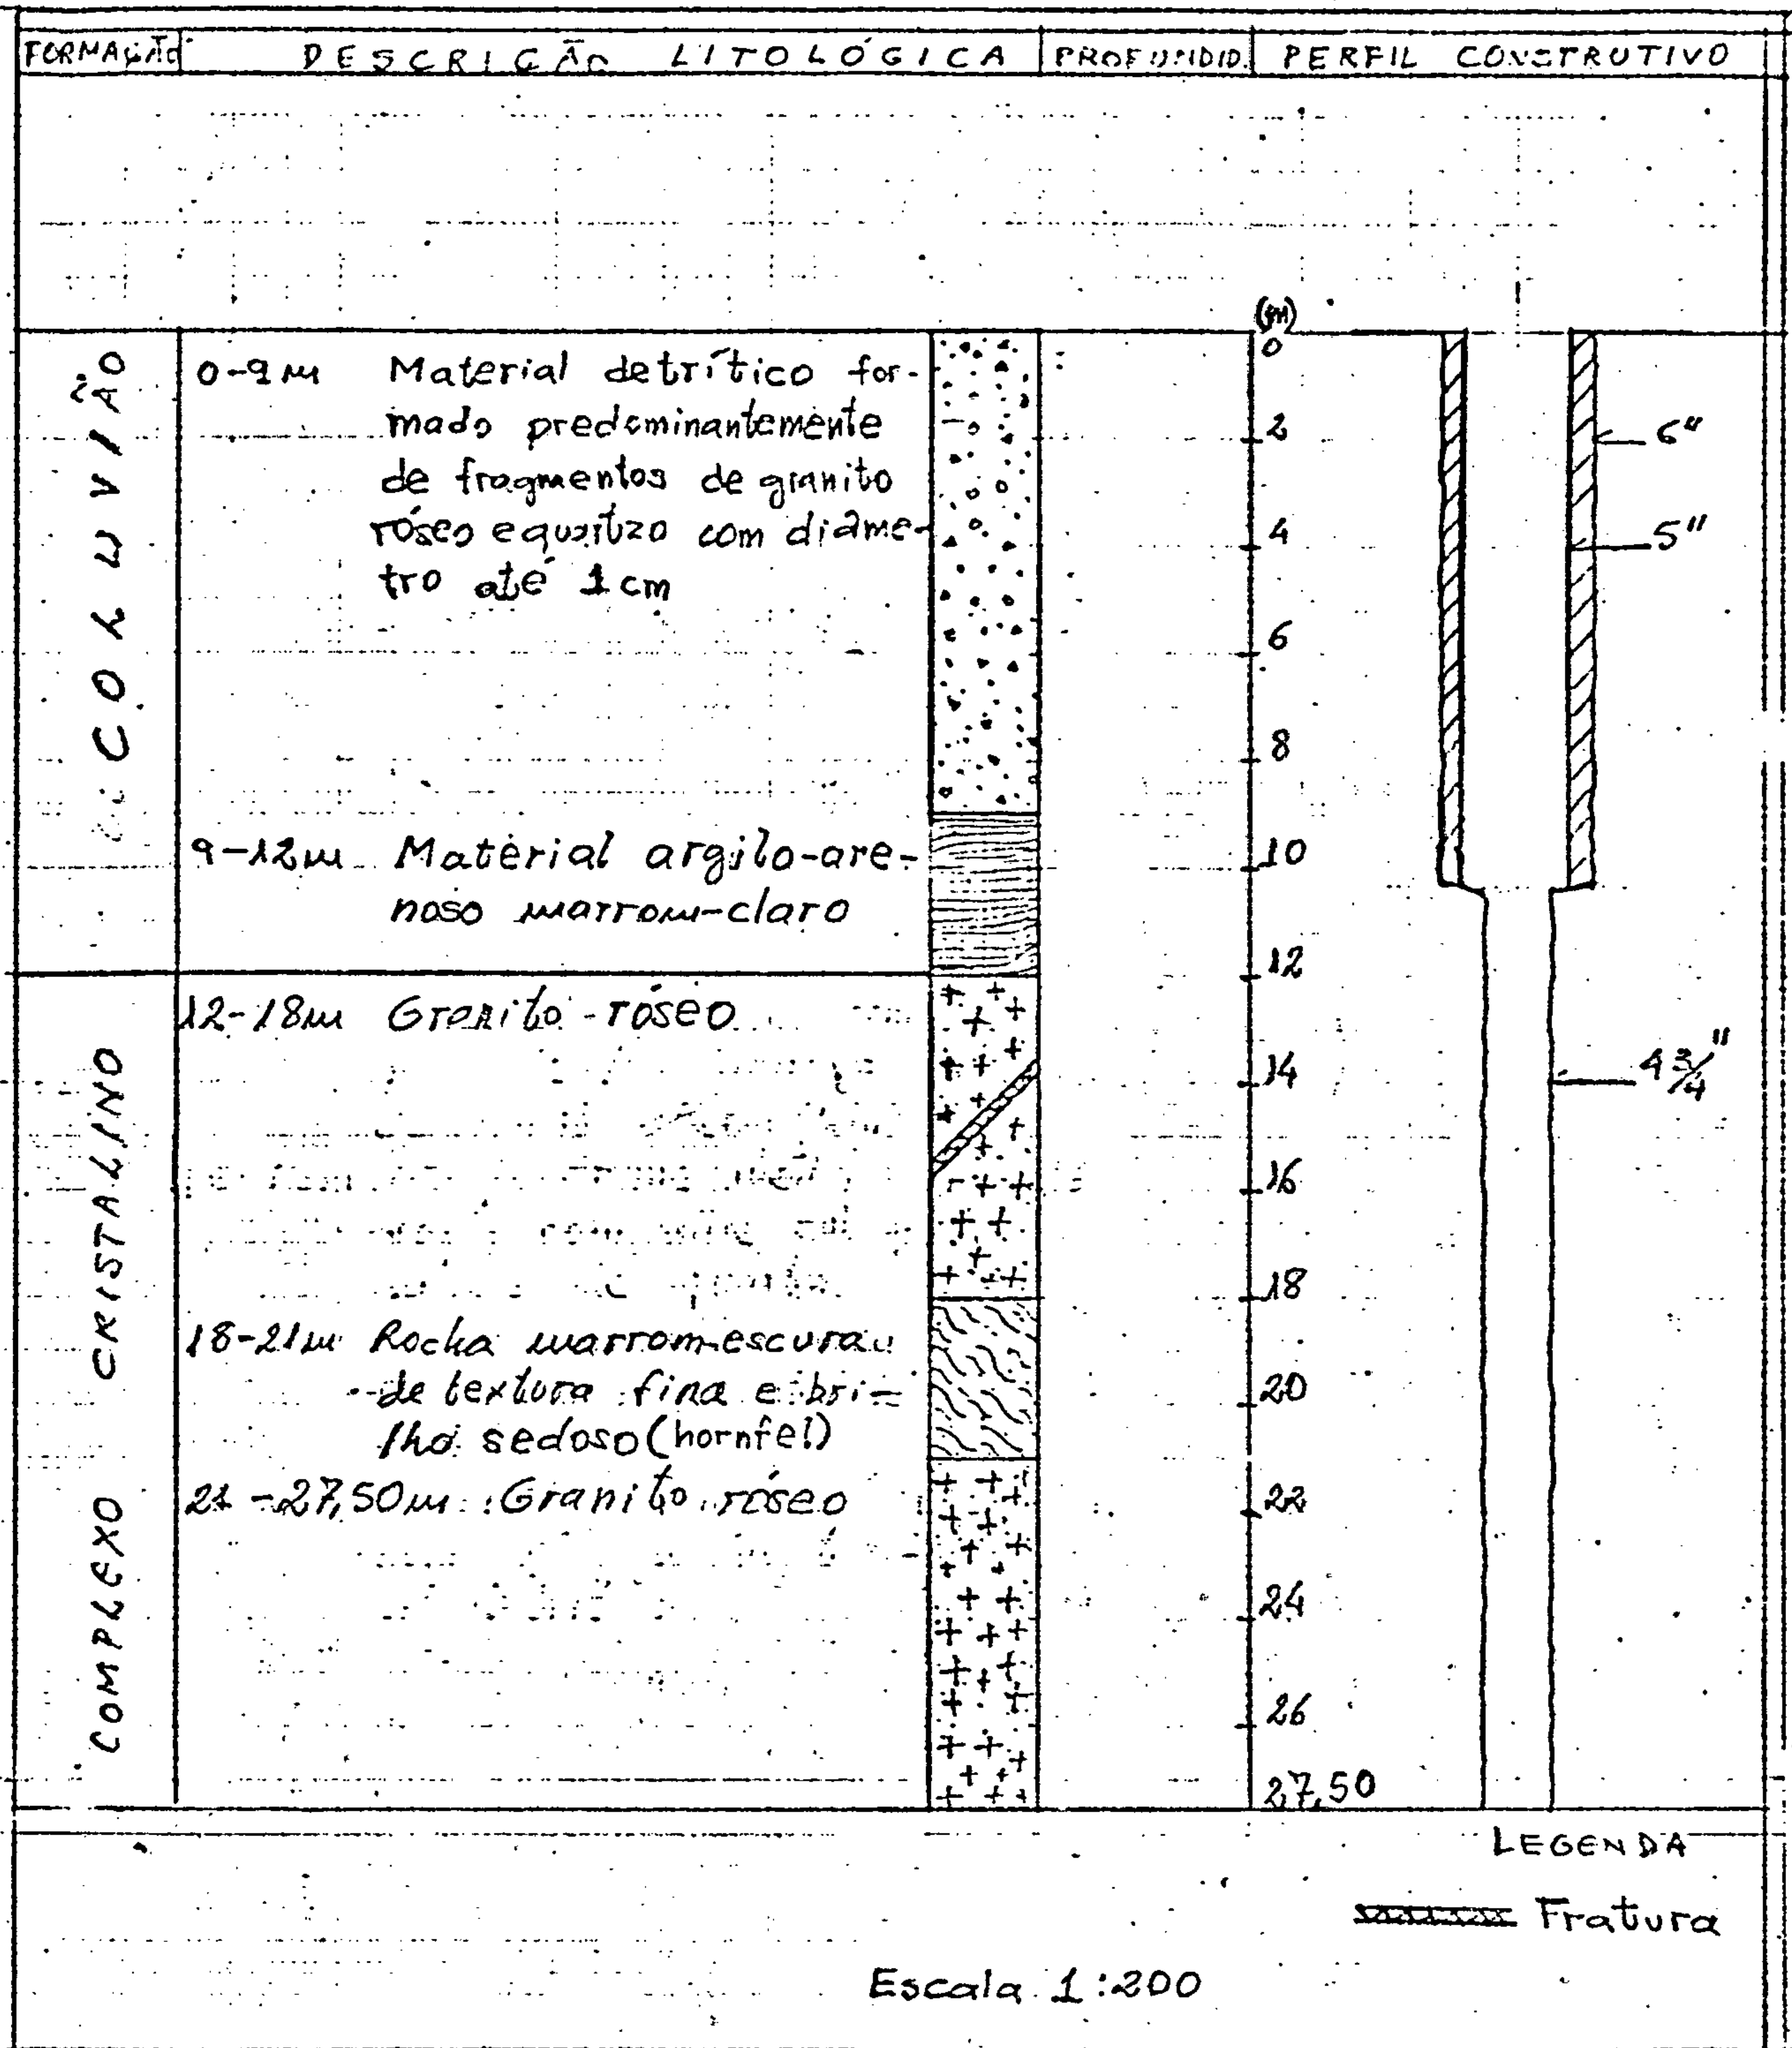 FORMAÇÃO DESCRIÇÃO LITOLÓGICA PROFUNDID. PERFIL CONSTRUTIVO
(m)
0
COLUVIÃO
0-9m Material detrítico for-
mado predominantemente
de fragmentos de granito
róseo e quartzo com diâme-
tro até 1 cm
2
6"
4
5"
6
8
9-12m Material argilo-are-
noso marrom-claro
10
12
COMPLEXO CRISTALINO
12-18m Granito róseo
14
4 3/4"
16
18
18-21m Rocha marrom-escura
de textura fina e bri-
lho sedoso (hornfel)
20
21-27,50m Granito róseo
22
24
26
27,50
LEGENDA
Fratura
Escala 1:200